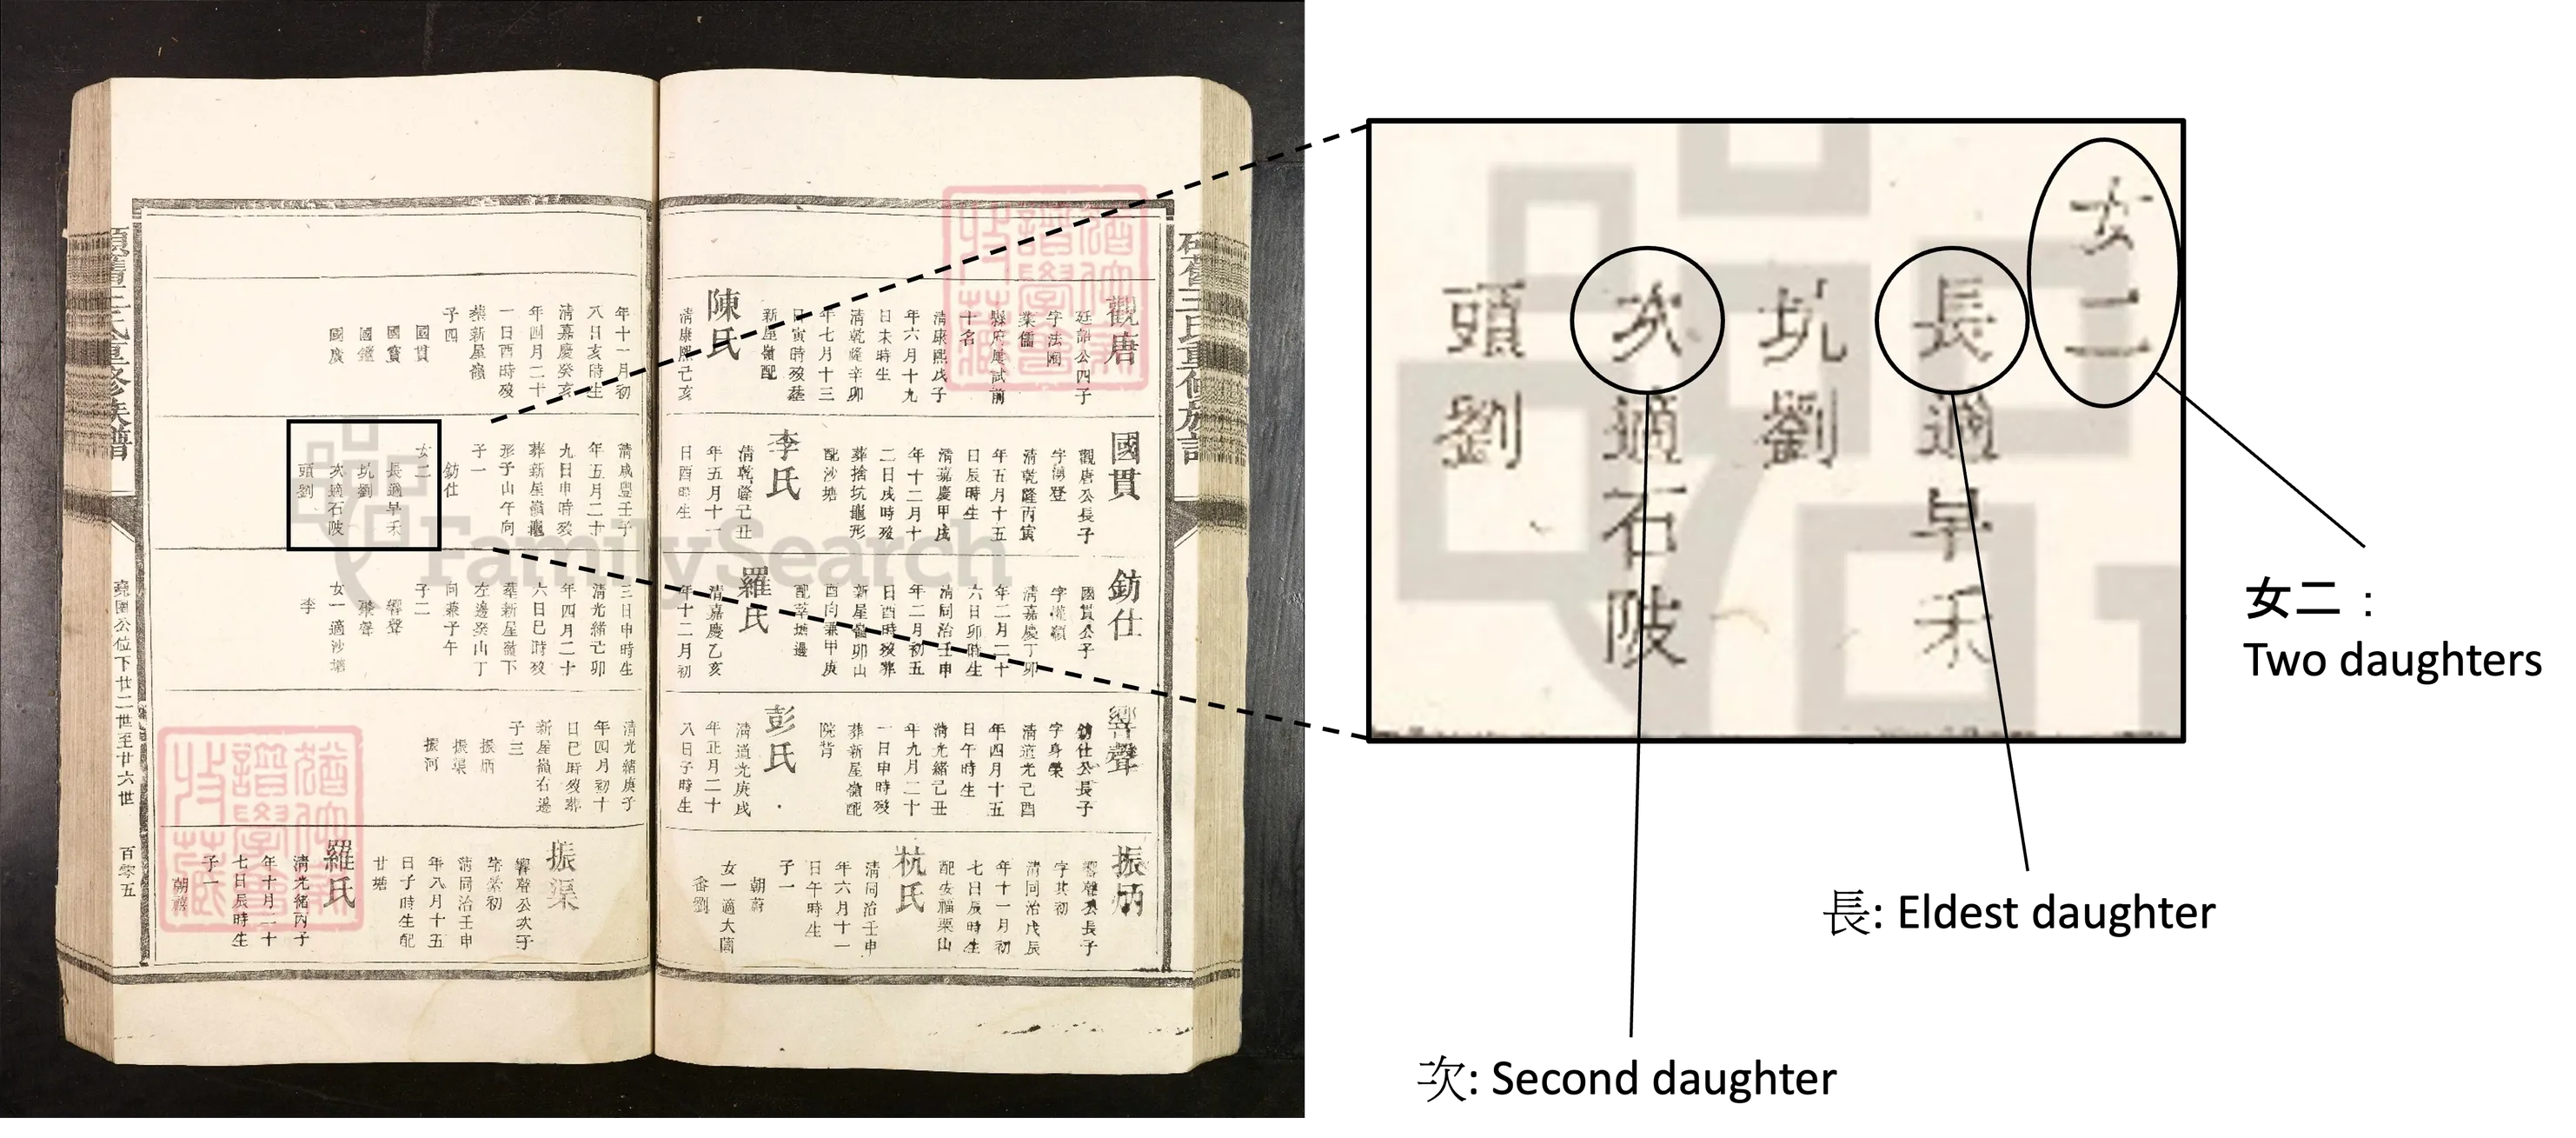 觀唐
廷諂公四子
字法園
業儒
縣府屢試前
十名
清康熙戊子
年六月十九
日未時生
清乾隆辛卯
年七月十三
日寅時歿葬
新屋嶺配
陳氏
清康熙己亥
國貫
觀唐公長子
字鴻登
清乾隆丙寅
年五月十五
日辰時生
清嘉慶甲戌
年十二月十
二日戌時歿
葬捨坑龜形
配沙塘
李氏
清乾隆己丑
年五月十一
日酉時生
鈁仕
國貫公子
字權穎
清嘉慶丁卯
年二月二十
六日卯時生
清同治壬申
年二月初五
日酉時歿葬
新屋嶺卯山
酉向兼甲庚
配莘塘邊
羅氏
清嘉慶乙亥
年十二月初
響聲
鈁仕公長子
字身榮
清道光己酉
年四月十五
日午時生
清光緒己丑
年九月二十
一日申時歿
葬新屋嶺配
院背
彭氏
清道光庚戌
年正月二十
八日子時生
振炳
響聲公長子
字其初
清同治戊辰
年十一月初
七日辰時生
配安福栗山
杭氏
清同治壬申
年六月十一
日午時生
子一
朝蔚
女一適大園
畬劉
年十一月初
八日亥時生
清嘉慶癸亥
年四月二十
一日酉時歿
葬新屋嶺
子四
國貫
國寳
國鐘
國廣
清咸豐壬子
年五月二十
九日申時歿
葬新屋嶺龜
形子山午向
子一
鈁仕
女二
長適早禾
坑劉
次適石陂
頭劉
三日申時生
清光緒己卯
年四月二十
六日巳時歿
葬新屋嶺下
左邊癸山丁
向兼子午
子二
響聲
飛聲
女一適沙塘
李
清光緒庚子
年四月初十
日巳時歿葬
新屋嶺右邊
子三
振炳
振渠
振河
振渠
響聲公次子
字紫初
清同治壬申
年八月十五
日子時生配
廿塘
羅氏
清光緒丙子
年十月二十
七日辰時生
子一
朝禧
堯園公位下廿二世至廿六世
百零五
FamilySearch
女二
長適早禾
坑劉
次適石陂
頭劉
女二：
Two daughters
長: Eldest daughter
次: Second daughter